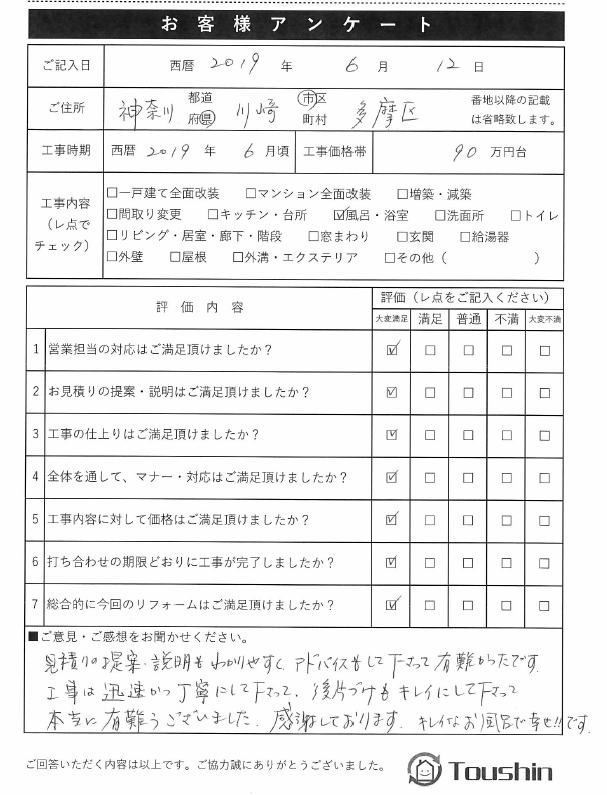 お客様アンケート
ご記入日 西暦 2019 年 6 月 12 日
ご住所 神奈川 都道府県 川崎 市区町村 多摩区 番地以降の記載は省略致します。
工事時期 西暦 2019 年 6 月頃 工事価格帯 90 万円台
工事内容(レ点でチェック)
□一戸建て全面改装 □マンション全面改装 □増築・減築
□間取り変更 □キッチン・台所 ☑風呂・浴室 □洗面所 □トイレ
□リビング・居室・廊下・階段 □窓まわり □玄関 □給湯器
□外壁 □屋根 □外溝・エクステリア □その他( )
評価内容 評価(レ点をご記入ください)
大変満足 満足 普通 不満 大変不満
1 営業担当の対応はご満足頂けましたか? ☑ □ □ □ □
2 お見積りの提案・説明はご満足頂けましたか? ☑ □ □ □ □
3 工事の仕上りはご満足頂けましたか? ☑ □ □ □ □
4 全体を通して、マナー・対応はご満足頂けましたか? ☑ □ □ □ □
5 工事内容に対して価格はご満足頂けましたか? ☑ □ □ □ □
6 打ち合わせの期限どおりに工事が完了しましたか? ☑ □ □ □ □
7 総合的に今回のリフォームはご満足頂けましたか? ☑ □ □ □ □
■ご意見・ご感想をお聞かせください。
見積りの提案・説明もわかりやすく、アドバイスもして下さって有難かったです。
工事は迅速かつ丁寧にして下さって、後片づけもキレイにして下さって
本当に有難うございました。感謝しております。キレイなお風呂で幸せ!!です。
ご回答いただく内容は以上です。ご協力誠にありがとうございました。
Toushin